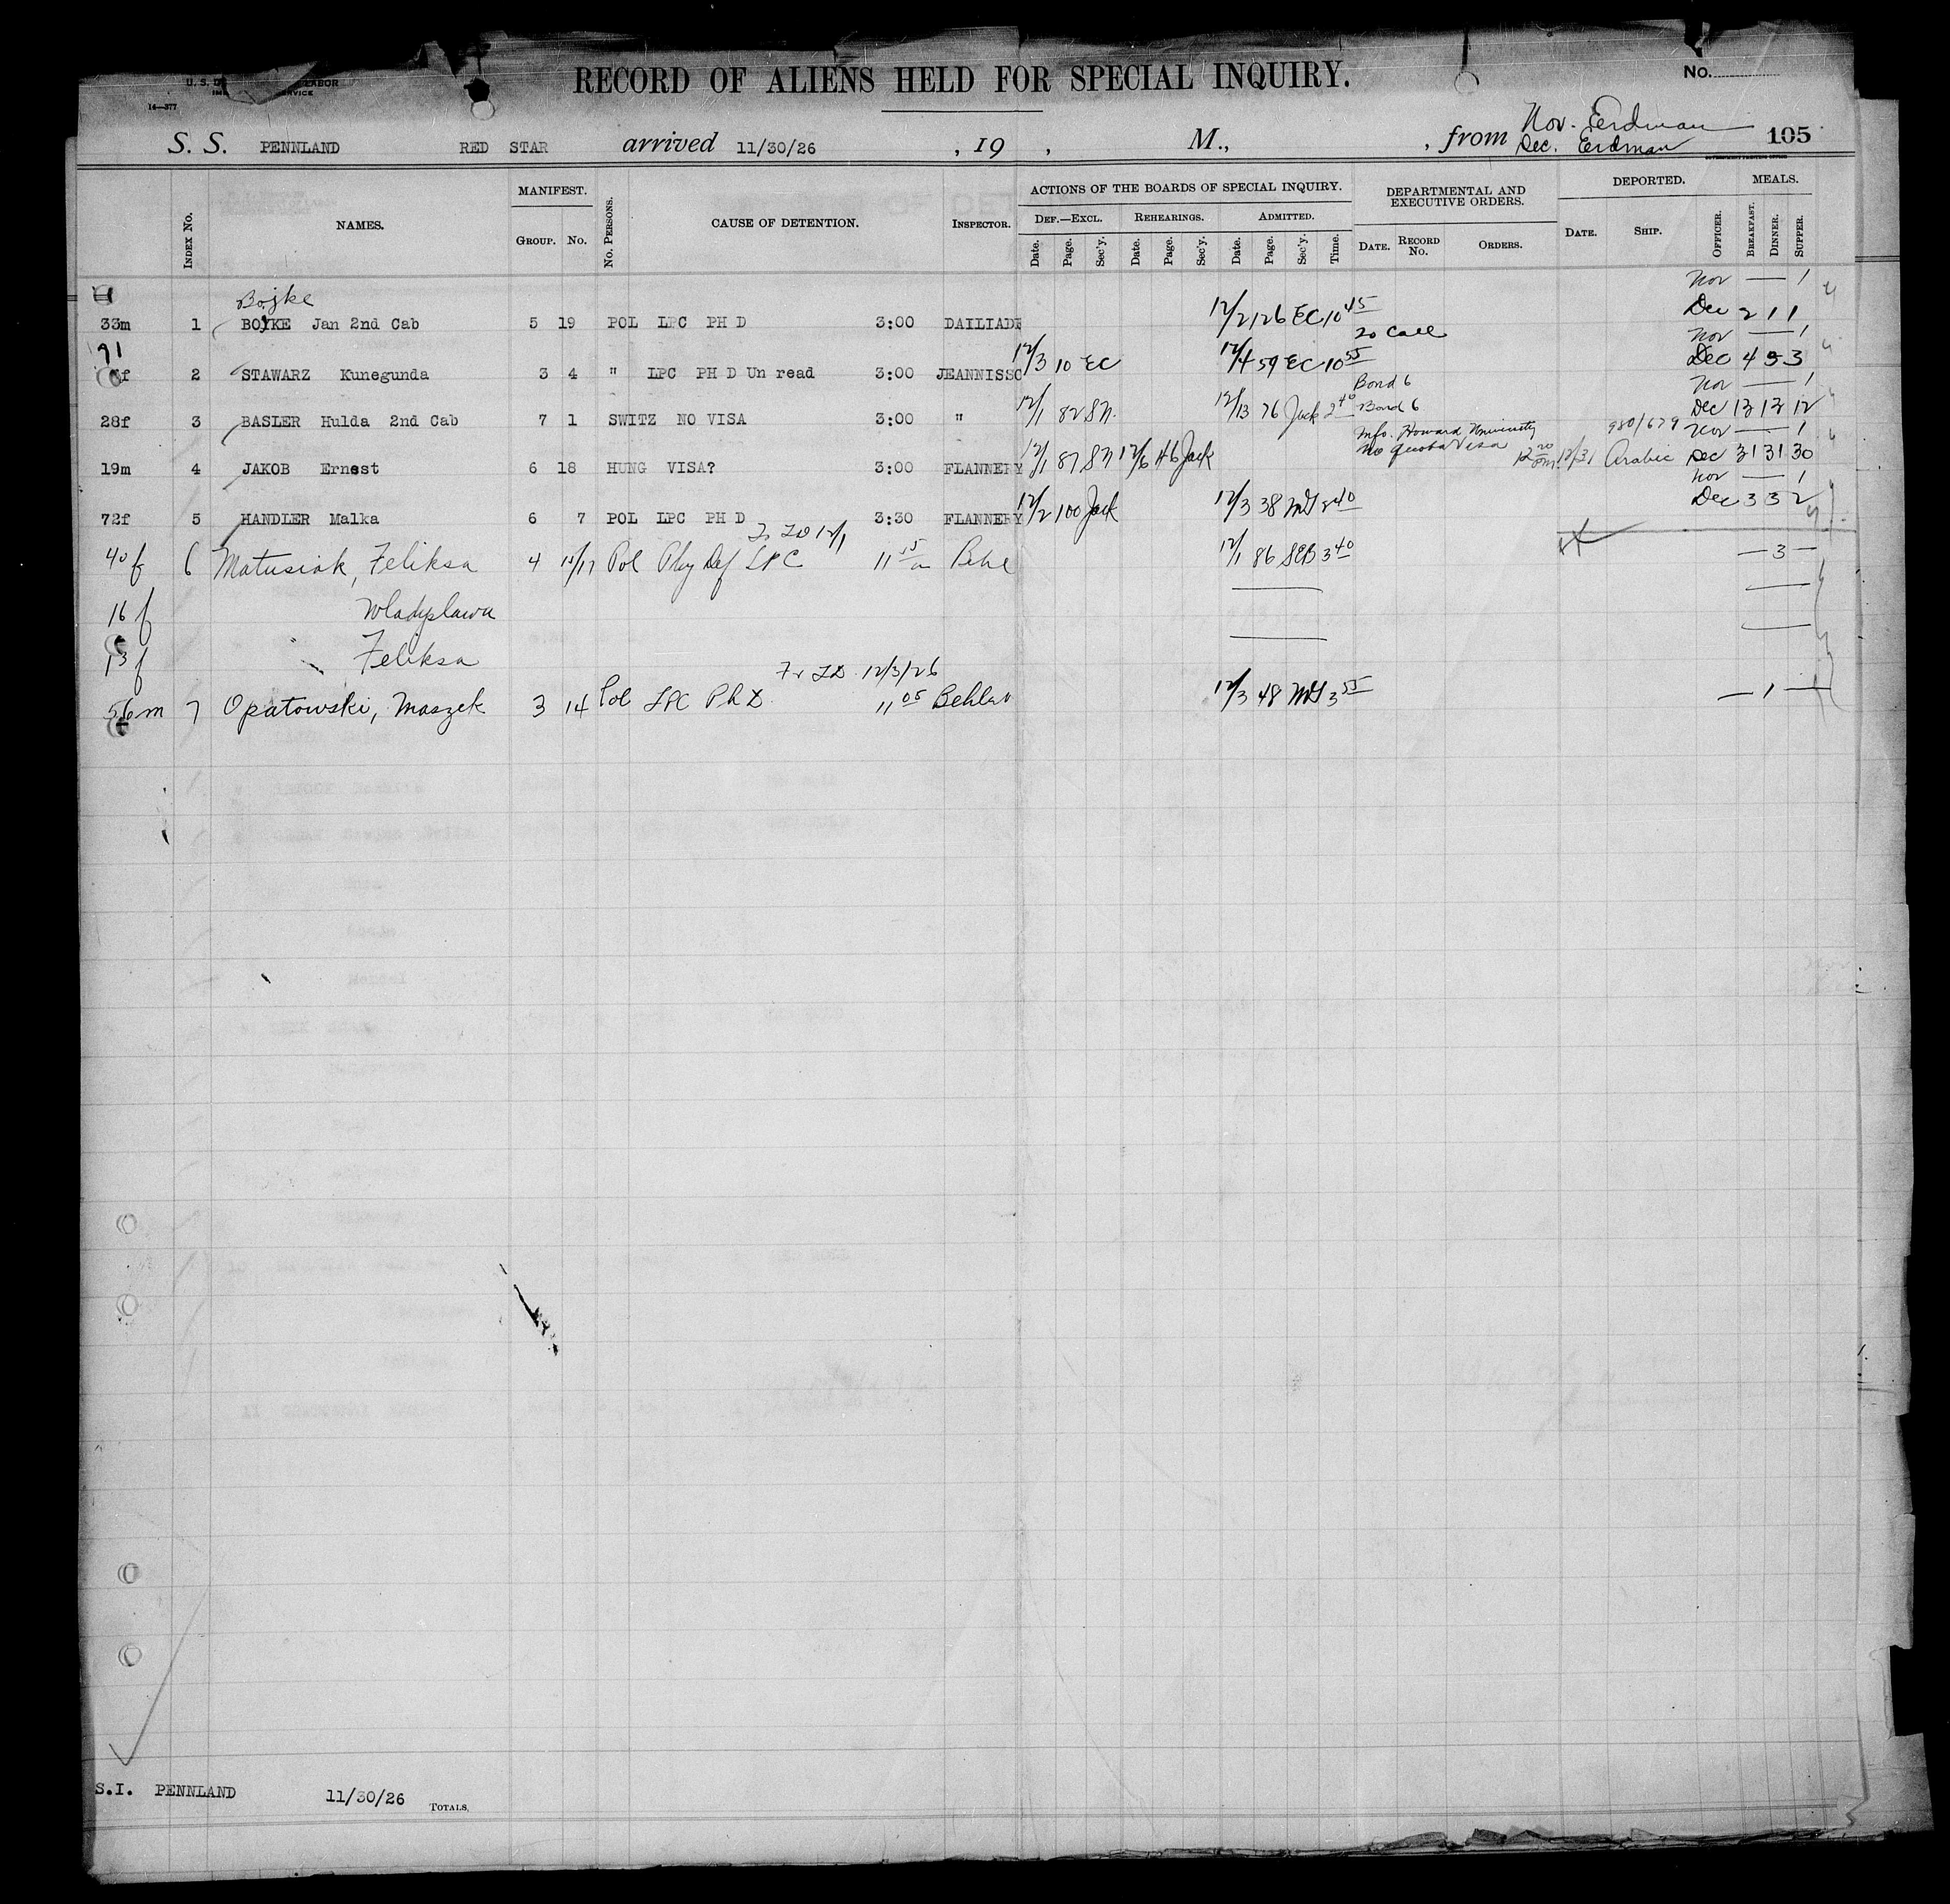 RECORD OF ALIENS HELD FOR SPECIAL INQUIRY.
No.
U. S. D LABOR
SERVICE
14—377
S. S. PENNLAND RED STAR arrived 11/30/26 , 19 , M., , from Nov. Erdman
Dec. Erdman
105
INDEX NO. NAMES. MANIFEST. GROUP. NO. NO. PERSONS. CAUSE OF DETENTION. INSPECTOR.
ACTIONS OF THE BOARDS OF SPECIAL INQUIRY.
DEF.—EXCL. REHEARINGS. ADMITTED.
Date. Page. Sec'y. Date. Page. Sec'y. Date. Page. Sec'y. Time.
DEPARTMENTAL AND EXECUTIVE ORDERS.
DATE. RECORD NO. ORDERS.
DEPORTED.
DATE. SHIP. OFFICER.
MEALS.
BREAKFAST. DINNER. SUPPER.
Nov — 1
Bojke
33m 1 BOYKE Jan 2nd Cab 5 19 POL LPC PH D 3:00 DAILIADE 12/2 126 EC 10 45 Dec 2 1 1
20 Call
Nov — 1
91
f 2 STAWARZ Kunegunda 3 4 " LPC PH D Un read 3:00 JEANNISSO 12/3 10 EC 12/4 59 EC 10 55 Dec 4 5 3
Bond 6
Nov — 1
28f 3 BASLER Hulda 2nd Cab 7 1 SWITZ NO VISA 3:00 " 12/1 82 SN. 12/13 76 Jack 2 40 Bond 6 Dec 13 13 12
Info. Howard University
No Quota Visa
980/679 Nov — 1
19m 4 JAKOB Ernest 6 18 HUNG VISA? 3:00 FLANNERY 12/1 87 SN 12/6 46 Jack 12 20 pm 12/31 Arabic Dec 31 31 30
Nov — 1
72f 5 HANDLER Malka 6 7 POL LPC PH D 3:30 FLANNERY 12/2 100 Jack 12/3 38 Dec 3 3 2
12/1
40 f 6 Matusiak, Feliksa 4 15/17 Pol Phy Def LPC 11 15 a 12/1 86 SEB 3 40 — 3 —
16 f Wladyslawa
13 f Feliksa
12/3/26
56 m 7 Opatowski, Moszek 3 14 Pol LPC Ph D. 11 05 12/3 48 3 55 — 1 —
S.I. PENNLAND 11/30/26 TOTALS,